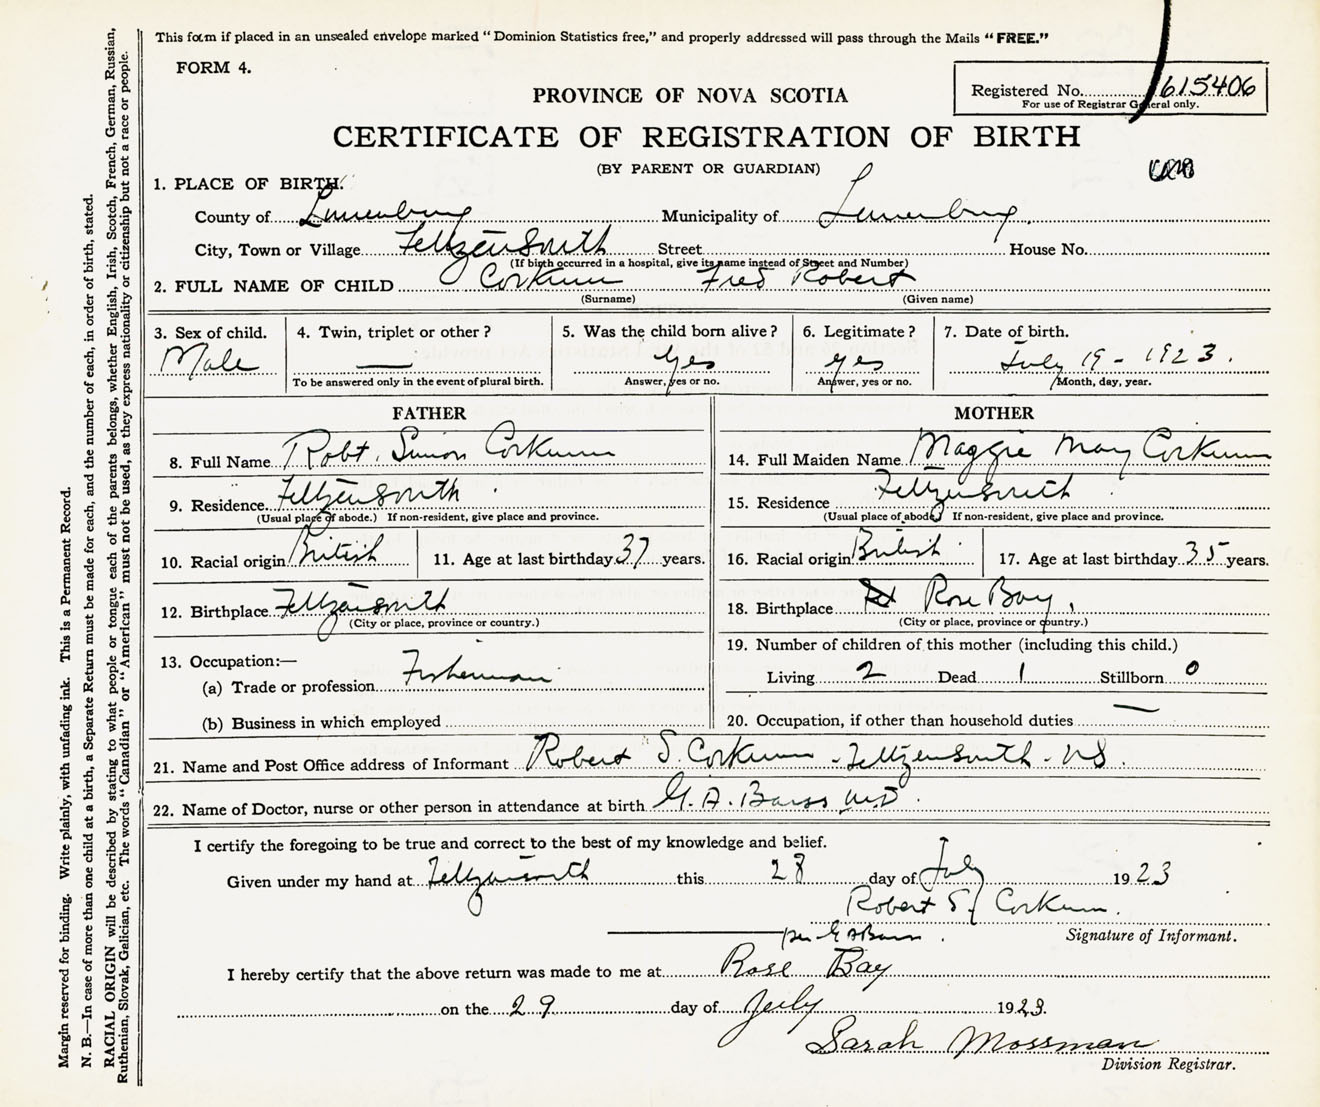 This form if placed in an unsealed envelope marked "Dominion Statistics free," and properly addressed will pass through the Mails "FREE."
FORM 4.
Registered No. 615406
For use of Registrar General only.
PROVINCE OF NOVA SCOTIA
CERTIFICATE OF REGISTRATION OF BIRTH
(BY PARENT OR GUARDIAN)
1. PLACE OF BIRTH.
County of Lunenburg Municipality of Lunenburg
City, Town or Village Feltzen South Street House No.
(If birth occurred in a hospital, give its name instead of Street and Number)
2. FULL NAME OF CHILD Corkum Fred Robert
(Surname) (Given name)
3. Sex of child. 4. Twin, triplet or other? 5. Was the child born alive? 6. Legitimate? 7. Date of birth.
Male — Yes Yes July 19 - 1923.
To be answered only in the event of plural birth. Answer, yes or no. Answer, yes or no. Month, day, year.
FATHER
8. Full Name Robt. Simon Corkum
9. Residence Feltzensouth
(Usual place of abode.) If non-resident, give place and province.
10. Racial origin British 11. Age at last birthday 37 years.
12. Birthplace Feltzensouth
(City or place, province or country.)
13. Occupation:—
(a) Trade or profession Fisherman
(b) Business in which employed
MOTHER
14. Full Maiden Name Maggie May Corkum
15. Residence Feltzensouth
(Usual place of abode) If non-resident, give place and province.
16. Racial origin British 17. Age at last birthday 35 years.
18. Birthplace Rose Bay,
(City or place, province or country.)
19. Number of children of this mother (including this child.)
Living 2 Dead 1 Stillborn 0
20. Occupation, if other than household duties —
21. Name and Post Office address of Informant Robert S. Corkum - Feltzensouth - NS.
22. Name of Doctor, nurse or other person in attendance at birth G. A. Barss MD.
I certify the foregoing to be true and correct to the best of my knowledge and belief.
Given under my hand at Feltzensouth this 28 day of July 1923
Robert S. Corkum.
per G A Barss.
Signature of Informant.
I hereby certify that the above return was made to me at Rose Bay
on the 29 day of July 1923.
Sarah Mossman
Division Registrar.
Margin reserved for binding. Write plainly, with unfading ink. This is a Permanent Record.
N. B.—In case of more than one child at a birth, a Separate Return must be made for each, and the number of each, in order of birth, stated.
RACIAL ORIGIN will be described by stating to what people or tongue each of the parents belongs, whether English, Irish, Scotch, French, German, Russian,
Ruthenian, Slovak, Galician, etc. The words "Canadian" or "American" must not be used, as they express nationality or citizenship but not a race or people.